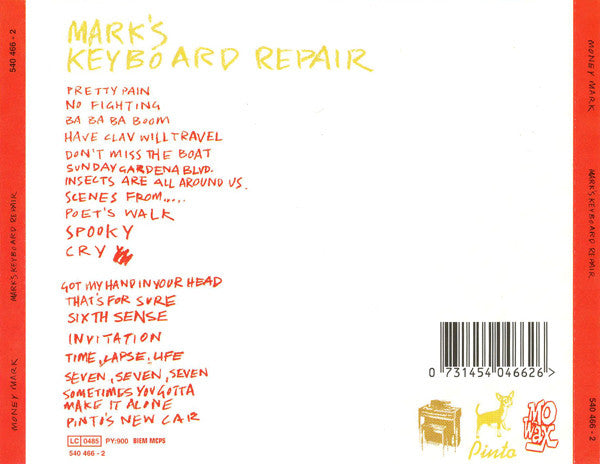 MARK'S
KEYBOARD REPAIR
PRETTY PAIN
NO FIGHTING
BA BA BA BOOM
HAVE CLAV WILL TRAVEL
DON'T MISS THE BOAT
SUNDAY GARDENA BLVD.
INSECTS ARE ALL AROUND US.
SCENES FROM.....
POET'S WALK
SPOOKY
CRY
GOT MY HAND IN YOUR HEAD
THAT'S FOR SURE
SIXTH SENSE
INVITATION
TIME, LAPSE, LIFE
SEVEN, SEVEN, SEVEN
SOMETIMES YOU GOTTA
MAKE IT ALONE
PINTO'S NEW CAR
LC 0485 PY:900 BIEM MCPS
540 466 - 2
0 731454 046626 >
Pinto
MO
WAX
540 466 - 2
MARK'S KEYBOARD REPAIR
MONEY MARK
MONEY MARK
MARK'S KEYBOARD REPAIR
540 466 - 2